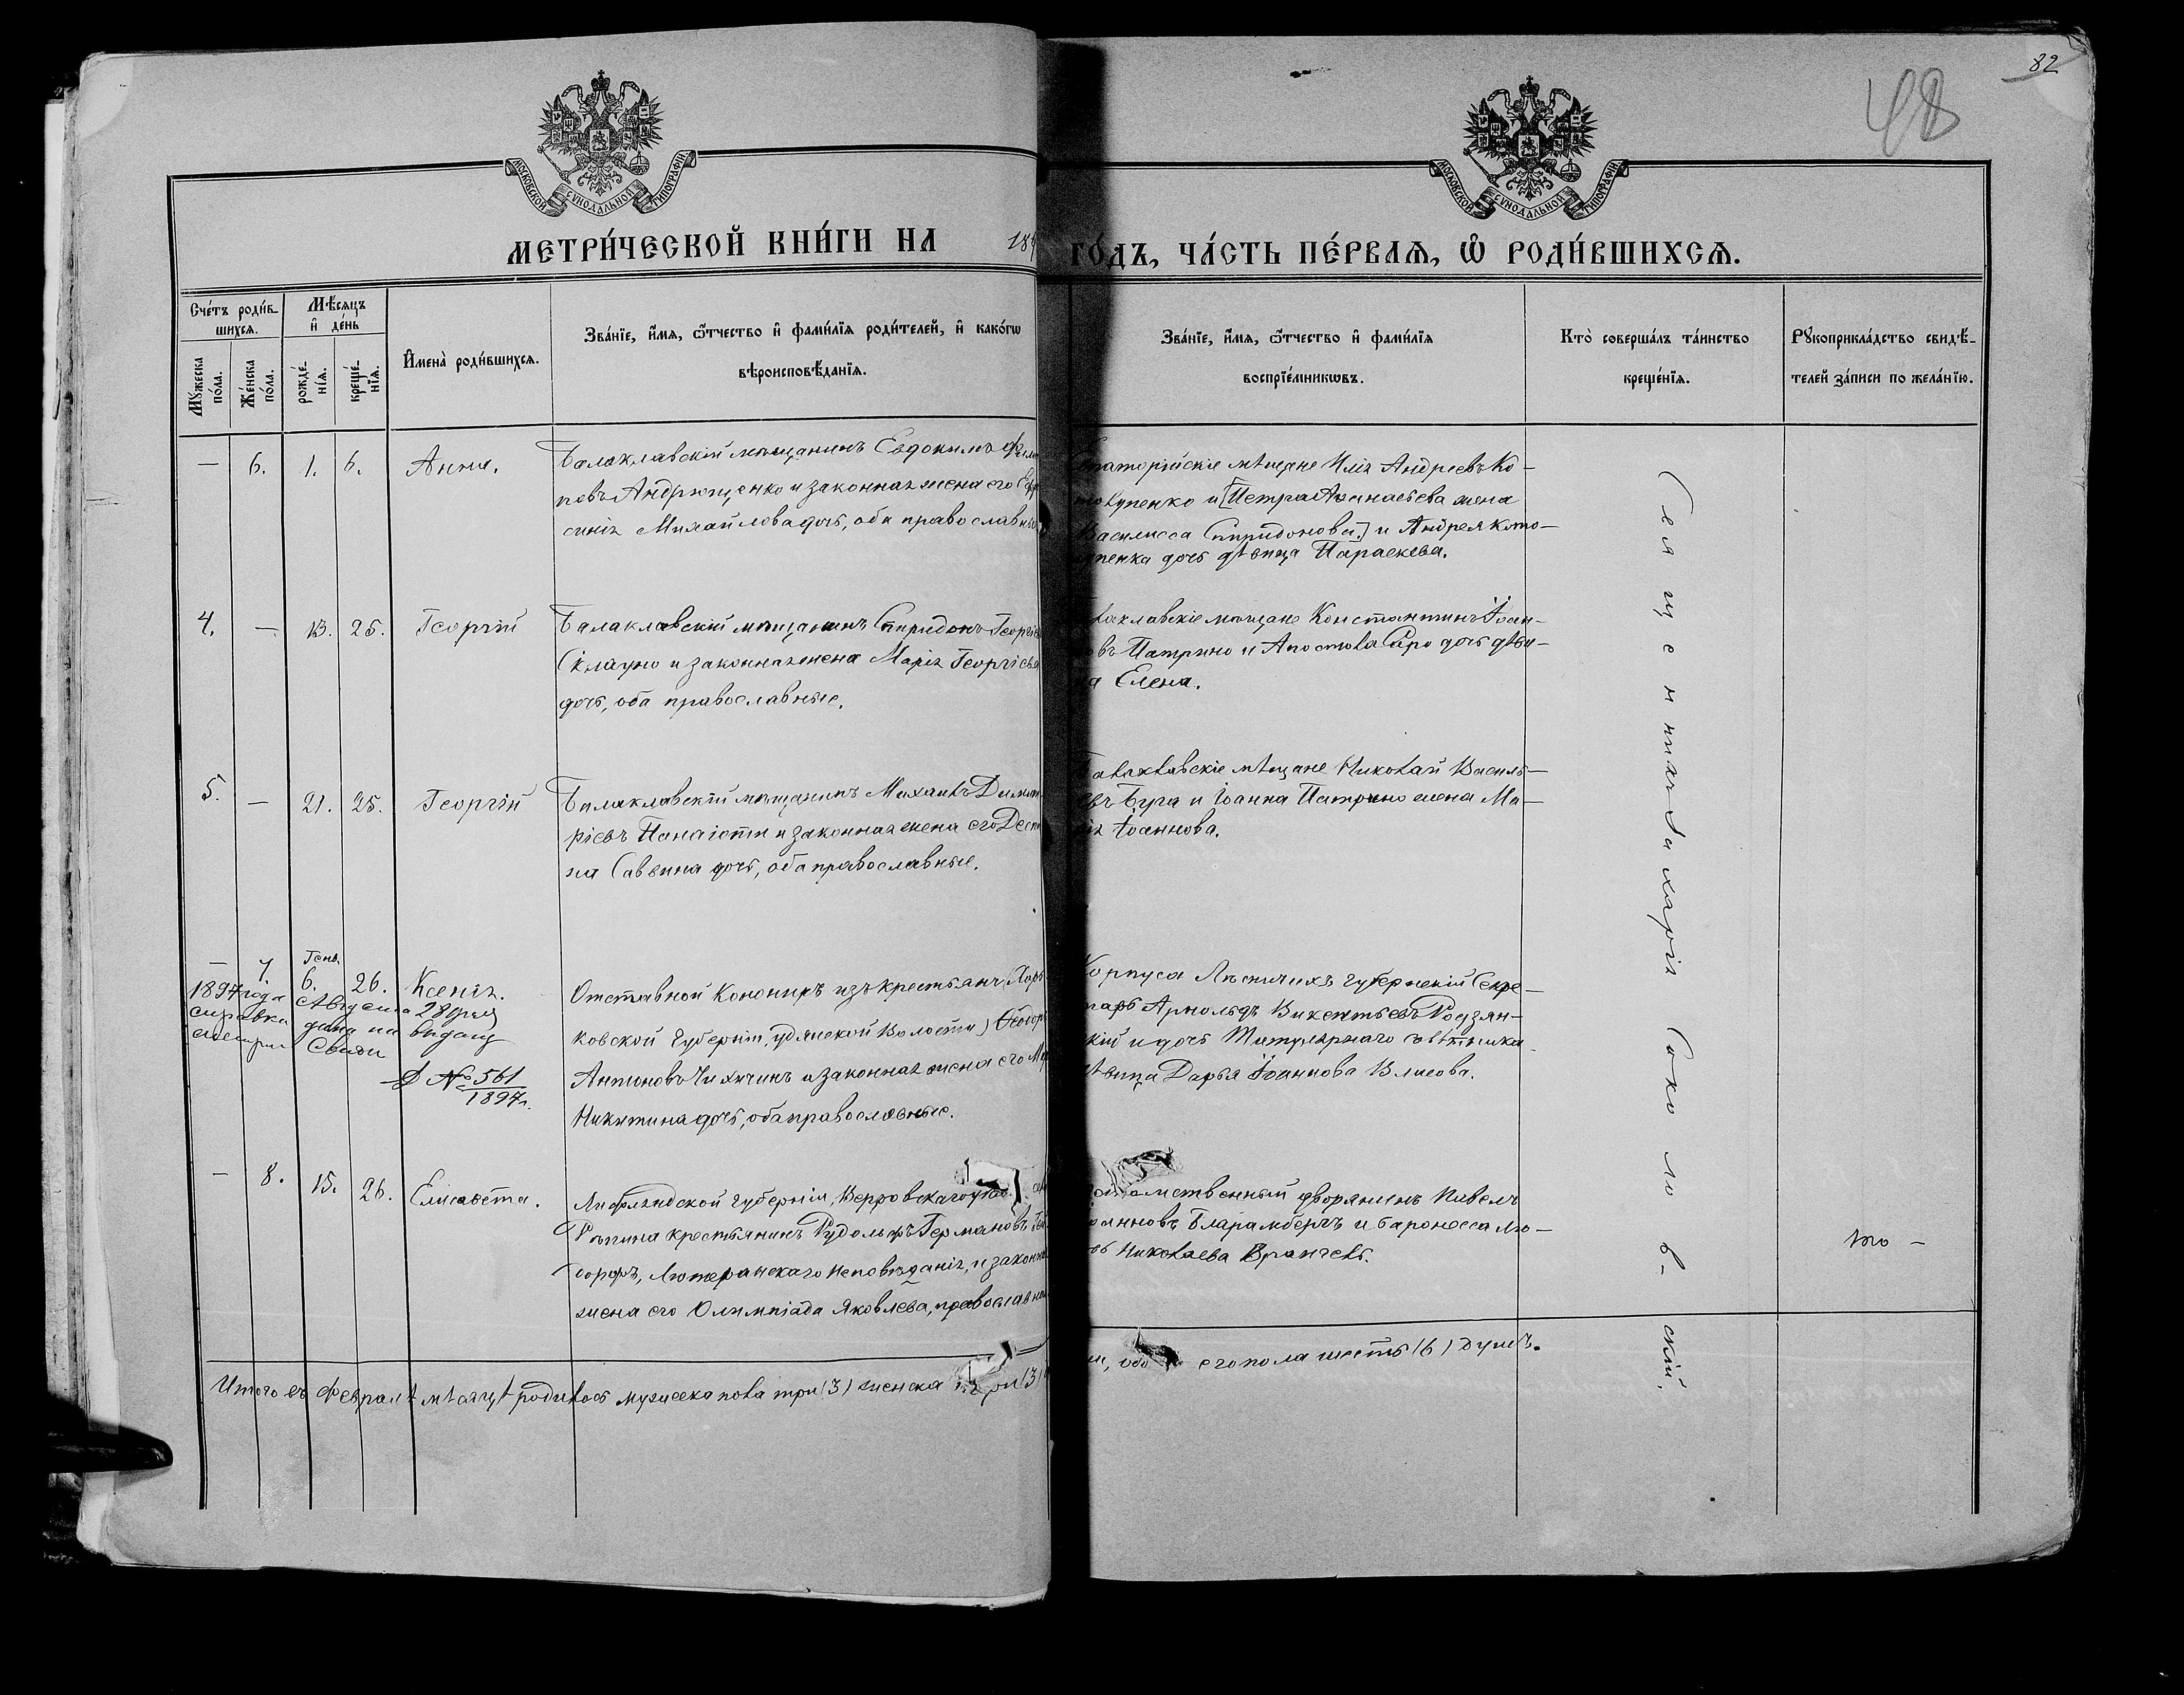 82
48
МОСКОВСКОЙ СѴНОДАЛЬНОЙ ТИПОГРАФІИ
МОСКОВСКОЙ СѴНОДАЛЬНОЙ ТИПОГРАФІИ
МЕТРИ́ЧЕСКОЙ КНИ́ГИ НА 189
ГО́ДЪ, ЧА́СТЬ ПЕ́РВАѦ, Ѡ҆ РОДИ́ВШИХСѦ.
Сче́тъ роди́в-
шихсѧ.
Мꙋ́жеска по́ла.
Же́нска по́ла.
Мѣ́сѧцъ
и҆ де́нь
рожде́-
нїѧ.
креще́-
нїѧ.
И҆мена̀ роди́вшихсѧ.
Зва́нїе, и҆́мѧ, ѻ҆́тчество и҆ фами́лїѧ роди́телей, и҆ како́гѡ
вѣроисповѣ́данїѧ.
Зва́нїе, и҆́мѧ, ѻ҆́тчество и҆ фами́лїѧ
воспрїе́мникѡвъ.
Кто̀ соверша́лъ та́инство
креще́нїѧ.
Рꙋкоприкла́дство свидѣ́-
телей за́писи по жела́нїю.
— 6. 1. 6. Анна.
Балаклавскій мѣщанинъ Евдокимъ Фили
повъ Андрющенко и законная жена его Евфр
синія Михайлова дочь, оба православные
Евпаторійскіе мѣщане Илія Андреевъ Ко-
лупенко и [Петра Аѳанасьева жена
Василисса Спиридонова] и Андрея Кото-
лупенка дочь дѣвица Параскева.
4. — 13. 25. Георгій
Балаклавскій мѣщанинъ Спиридонъ Георгіевъ
Склауно и законная жена Марія Георгіева
дочь, оба православные.
Балаклавскіе мѣщане Константинъ Іоан-
новъ Патрино и Апостола Саро дочь дѣви-
ца Елена.
5. — 21. 25. Георгій
Балаклавскій мѣщанинъ Михаилъ Димит
ріевъ Панаіоти и законная жена его Деспи
на Саввина дочь, оба православные.
Балаклавскіе мѣщане Николай Василь-
евъ Буга и Іоанна Патрино жена Ма-
рія Іоаннова.
— 7. Генв. 6. 26. Ксенія.
1897 года Августа 28 дня
справка дана на выдачу
метрич. Свиди
№ 561
1897 г.
Отставной Конониръ изъ крестьянъ, Харь
ковской Губерніи, волости, Ѳеодоръ
Антоновъ Чихичинъ и законная жена его Мар
Никитина дочь, оба православные.
Корпуса Лѣсничихъ Губернскій Секре-
тарь Арнольдъ Викентьевъ Родзян-
кій и дочь Титулярнаго совѣтника
дѣвица Дарья Іоаннова Власова.
— 8. 15. 26. Елисавета.
Лифляндской Губерніи, Верровскаго уѣзда
Рѣпина крестьянинъ Рудольфъ Германовъ
Лютеранскаго Исповѣданія, и законная
жена его Олимпіада Яковлева, православная
Потомственный дворянинъ Павелъ
Іоанновъ Бларамбергъ и баронесса Лю-
бовь Николаева Врангель.
Священникъ Захарія Соколовскій.
Итого въ Февралѣ мѣсяцѣ родилось мужеска пола три (3) женска три (3)
обоего пола шесть (6) душъ.